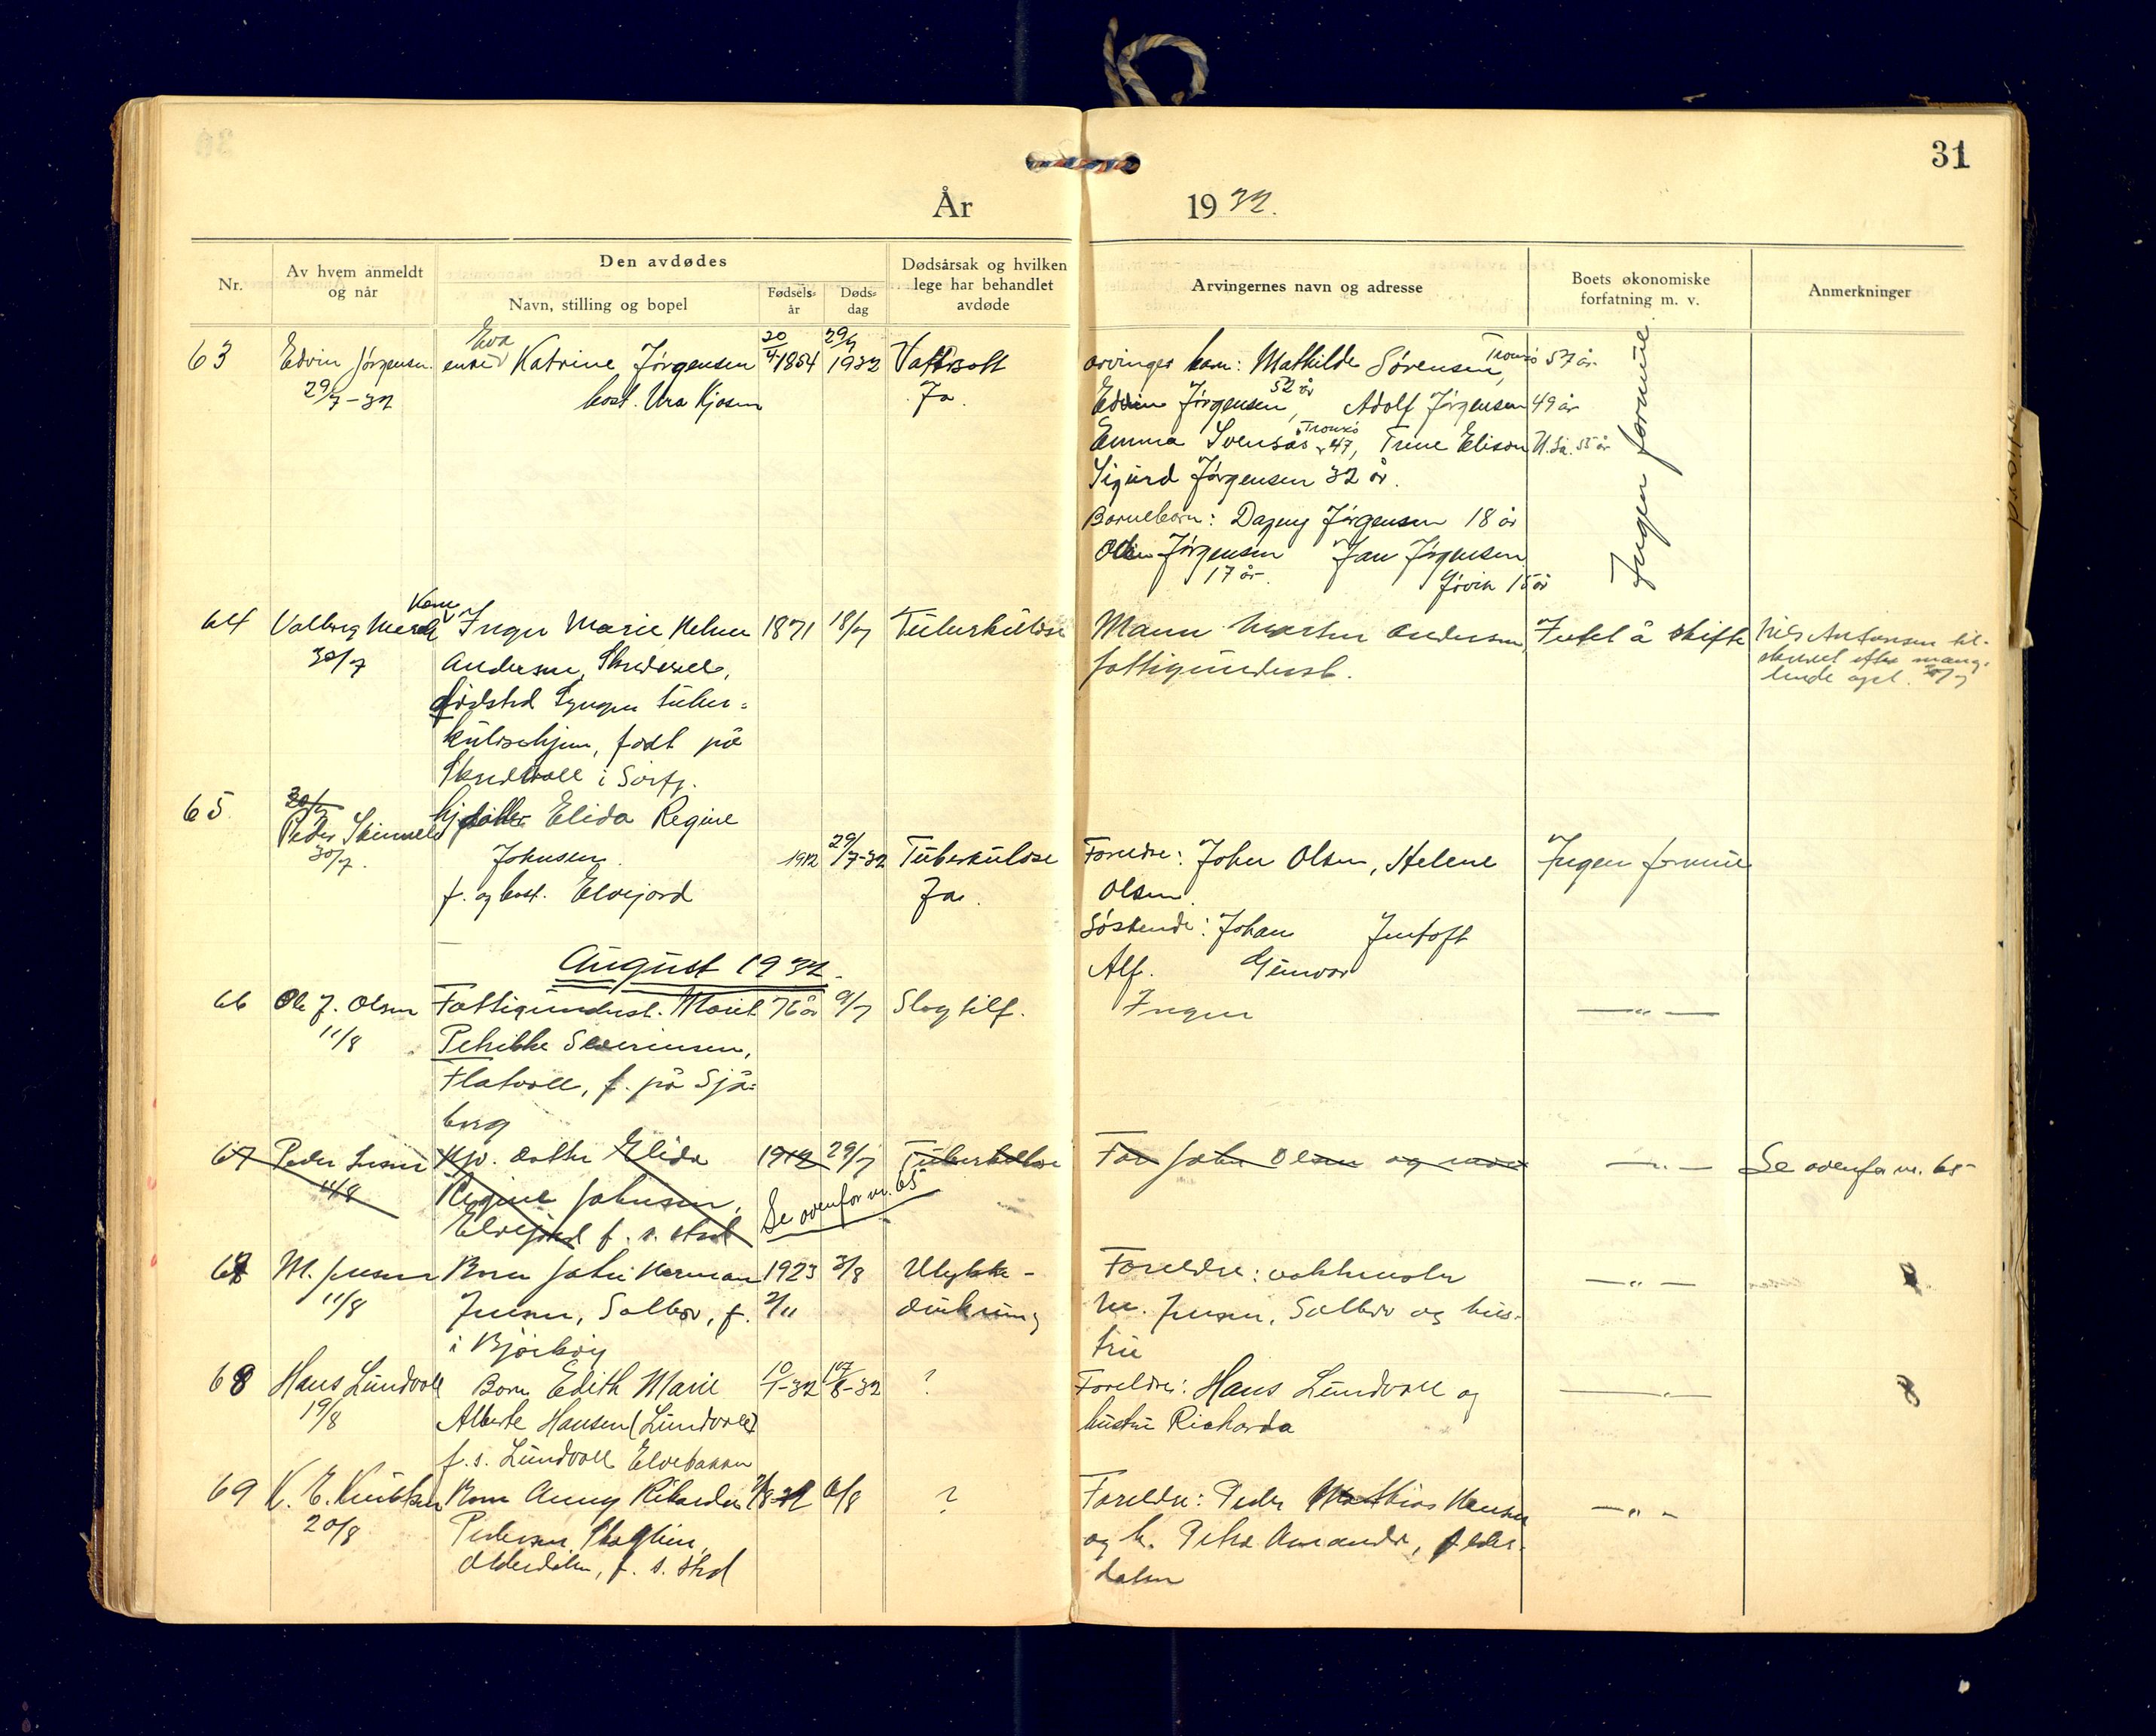 31
År 1932.
Nr.
Av hvem anmeldt og når
Den avdødes
Navn, stilling og bopel
Fødsels-år
Døds-dag
Dødsårsak og hvilken lege har behandlet avdøde
Arvingernes navn og adresse
Boets økonomiske forfatning m. v.
Anmerkninger
63 Edvin Jørgensen 29/7-32
Eva
enke Katrine Jørgensen
bost. Ura Kjosen
20/4 1854
29/7 1932
Vattersott
Ja.
arvinger barn: Mathilde Sørensen, Tromsø 57 år
Edvin Jørgensen, 52 år Adolf Jørgensen 49 år
Emma Svensås Tromsø 47, Trine Elison U.S.A. 55 år
Sigurd Jørgensen 32 år.
Barnebarn: Dagny Jørgensen 18 år
Odin Jørgensen 17 år. Jan Jørgensen
Gjøvik 15 år
Ingen formue.
64 Valborg 30/7
Kone
Inger Marie Helene
Andersen,
dødsted Lyngen tuber-
kulosehjem, født på
i Sørfj.
1871
18/7
Tuberkulose
Mann Andersen,
fattigunderst.
Intet å skifte
Nils Antonsen til-
skrevet efter mang-
lende opl. 30/7
65. 30/7
Peder
30/7.
hj. datter Elida Regine
Johnsen.
f. og bost. Elvejord
1912
29/7-32
Tuberkulose
Ja.
Foreldre: John Olsen, Helene
Olsen.
Søskende: Johan Jentoft
Alf. Gunvor
Ingen formue
August 1932.
66 Ole J. Olsen 11/8
Fattigunderst. Marit
Petrikke Severinsen,
Flatvoll, f. på Sjå-
berg
76 år
9/7
Slagtilf.
Ingen
— " —
67 Peder 11/8
Hjv. datter Elida
Regine Johnsen,
Elvejord f. s. sted
1912
29/7
Tuberkulose
Se ovenfor nr. 65
Far John Olsen og mor
— " —
Se ovenfor nr. 65
67 M. Jensen 11/8
Barn Herman
Jensen, f.
i
1923
2/11
3/8
Ulykke -
drukning
Foreldre:
M. Jensen, og hus-
tru
— " —
68 Hans Lundvoll 19/8
Barn Edith Marie
Alberte Hansen (Lundvoll)
f. s. Lundvoll Elvebakken
10/1-32
17/8-32
?
Foreldre: Hans Lundvoll og
hustru Richarda
— " —
69 K. E. Knutsen 20/8
Barn Anny Rikarda
Pedersen,
Olderdalen, f. s. sted
6/8
?
Foreldre: Peder Mathias Hansen
og h. Petra Amanda, Older-
dalen
— " —